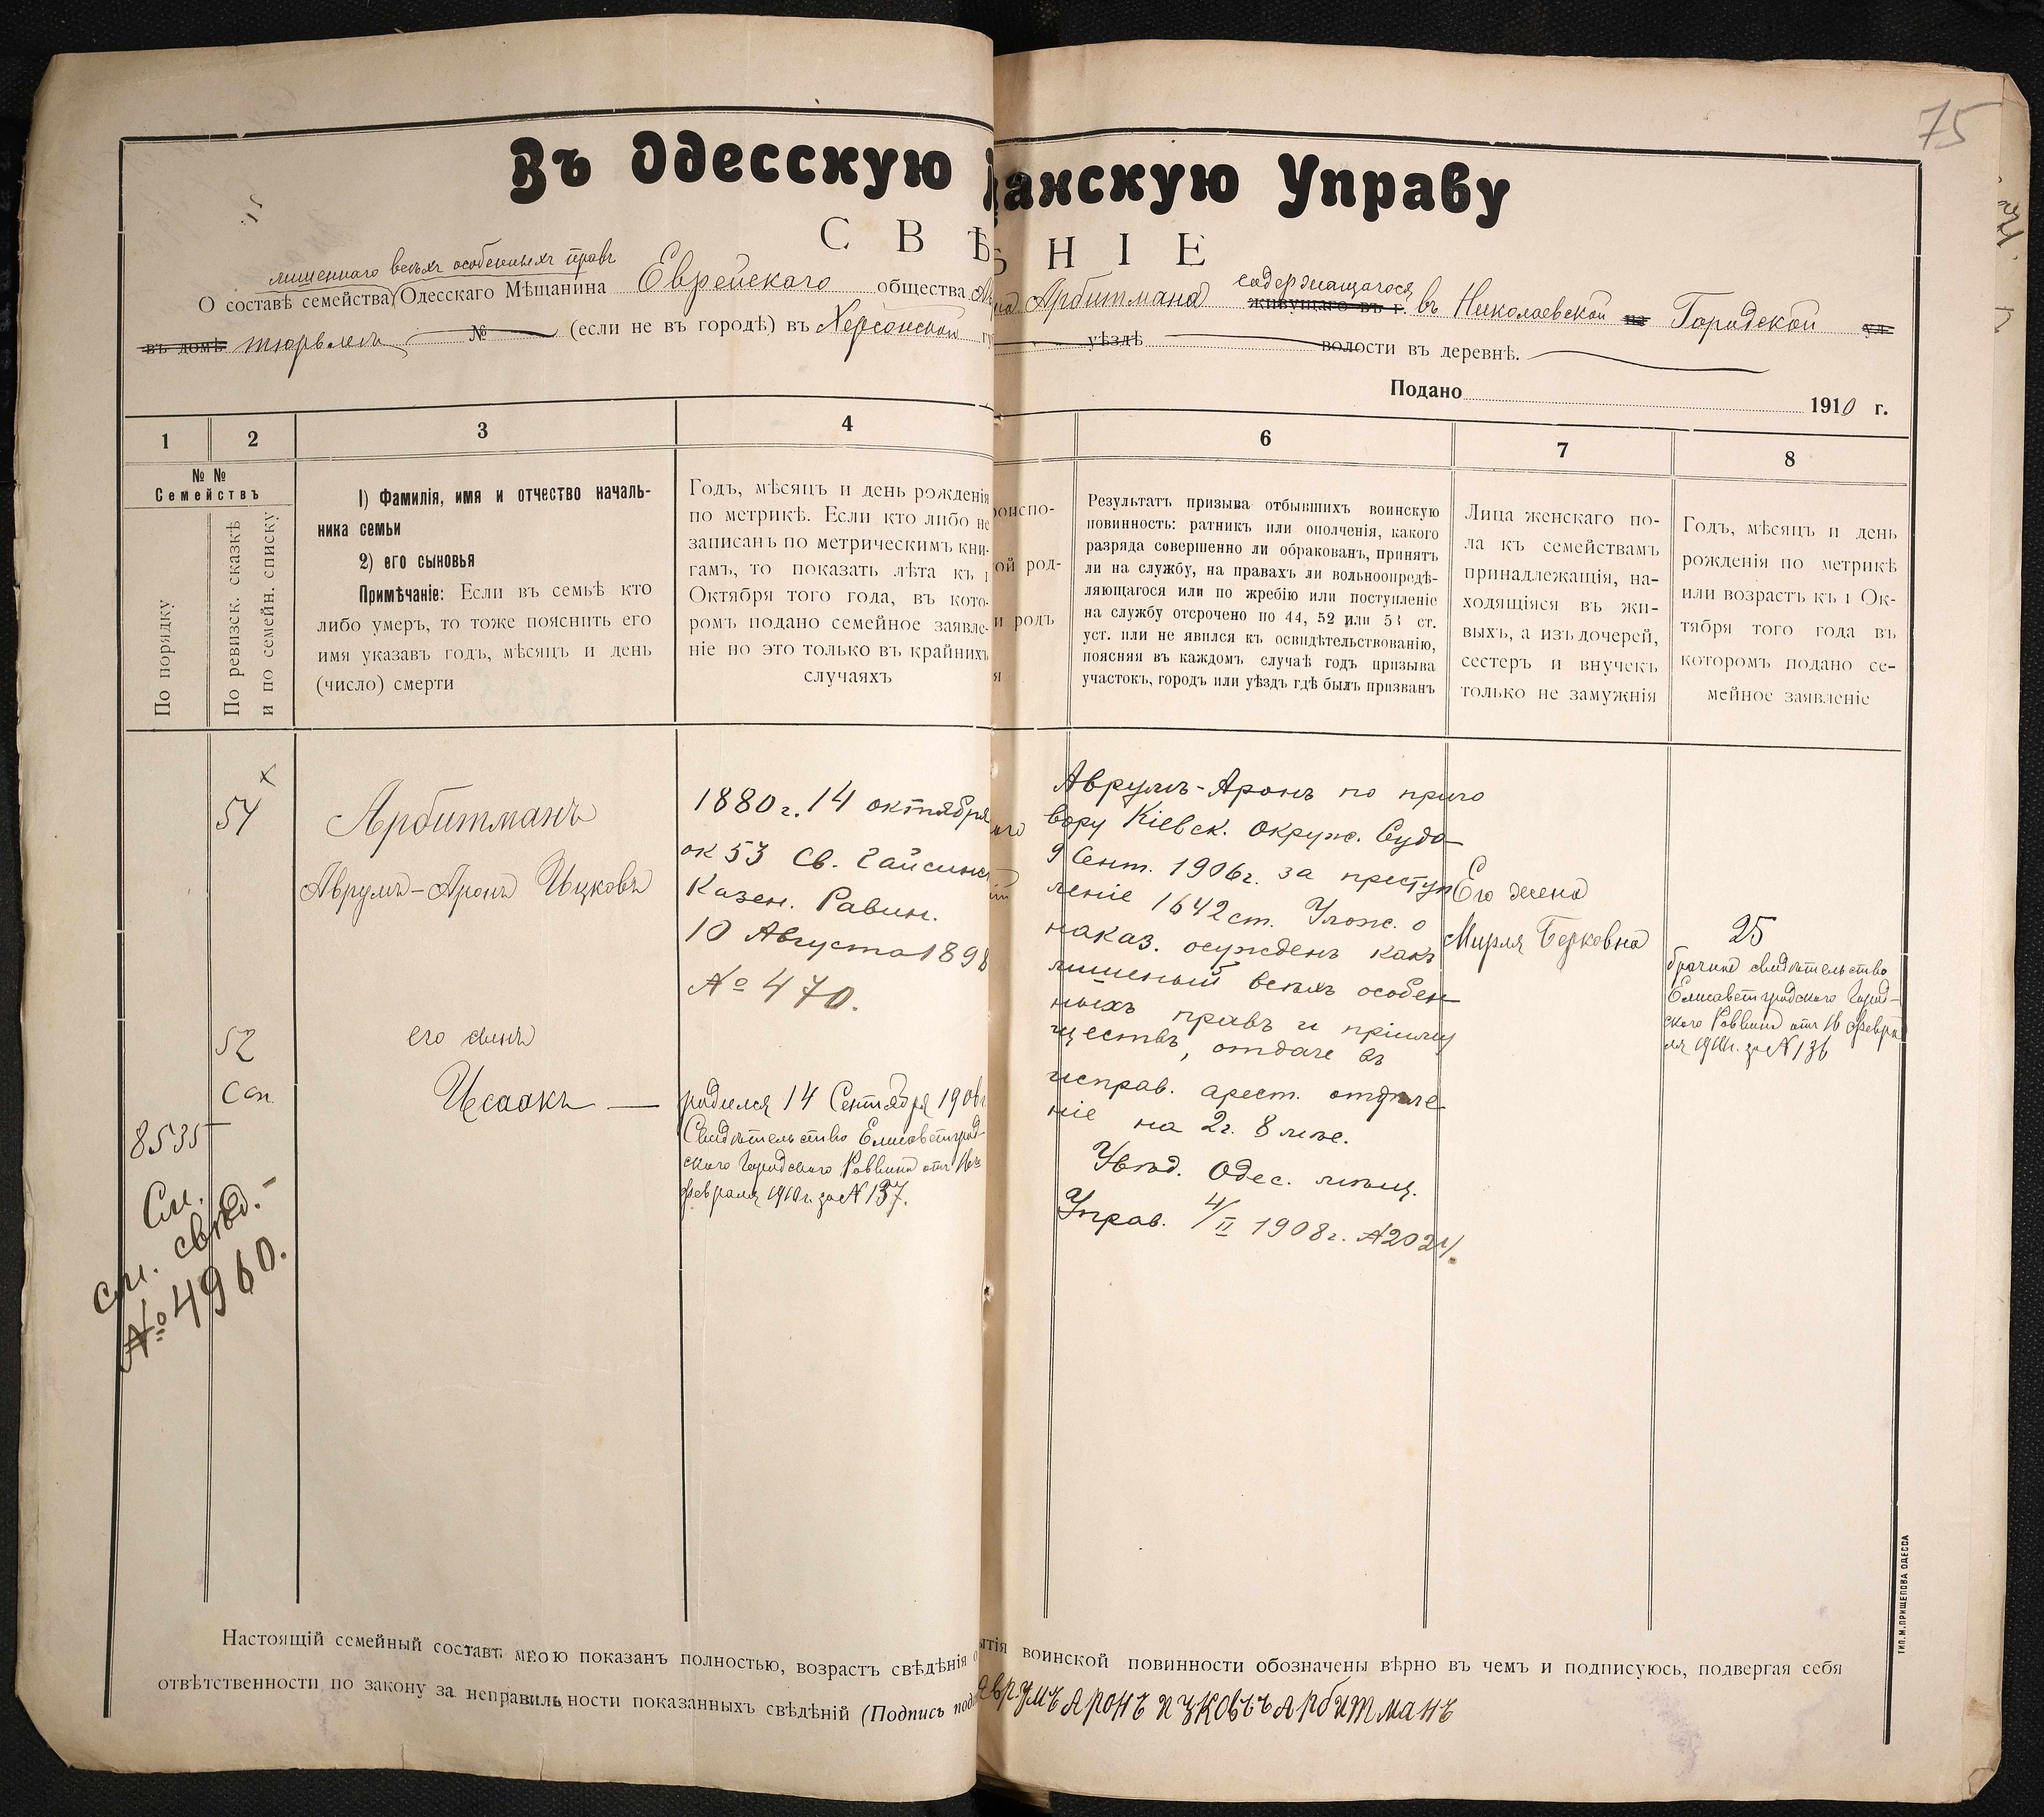 75
Въ Одесскую
анскую Управу
С В Ѣ
Н І Е
лишеннаго всѣхъ особенныхъ правъ
О составѣ семейства Одесскаго Мѣщанина Еврейскаго общества
Арбитмана содержащагося живущаго въ г. въ Николаевской на Городской ул.
въ домѣ тюрьмѣ № (если не въ городѣ) въ Херсонской
уѣздѣ волости въ деревнѣ.
Подано 1910 г.
1 2 3 4 6 7 8
№ №
Семействъ
По порядку
По ревизск. сказкѣ
и по семейн. списку
1) Фамилія, имя и отчество началь-
ника семьи
2) его сыновья
Примѣчаніе: Если въ семьѣ кто
либо умеръ, то тоже пояснить его
имя указавъ годъ, мѣсяцъ и день
(число) смерти
Годъ, мѣсяцъ и день рожденія
по метрикѣ. Если кто либо не
записанъ по метрическимъ кни-
гамъ, то показать лѣта къ 1
Октября того года, въ кото-
ромъ подано семейное заявле-
ніе но это только въ крайнихъ
случаяхъ
роиспо-
ой род-
и родъ
я
Результатъ призыва отбывшихъ воинскую
повинность: ратникъ или ополченія, какого
разряда совершенно ли обракованъ, принятъ
ли на службу, на правахъ ли вольноопредѣ-
ляющагося или по жребію или поступленіе
на службу отсрочено по 44, 52 или 53 ст.
уст. или не явился къ освидѣтельствованію,
поясняя въ каждомъ случаѣ годъ призыва
участокъ, городъ или уѣздъ гдѣ былъ призванъ
Лица женскаго по-
ла къ семействамъ
принадлежащія, на-
ходящіяся въ жи-
выхъ, а изъ дочерей,
сестеръ и внучекъ
только не замужнія
Годъ, мѣсяцъ и день
рожденія по метрикѣ
или возрастъ къ 1 Ок-
тября того года въ
которомъ подано се-
мейное заявленіе
54 х
Арбитманъ
Аврумъ-Аронъ Ицковъ
1880 г. 14 октября
ок 53 Св. Гайсинс
Казен. Равин.
10 Августа 1898
№ 470.
52
Сап.
его сынъ
Исаакъ —
родился 14 Сентября 1906 г
Свидѣтельство Елисаветград-
скаго Городского Раввина отъ 16го
февраля 1910 г. за N 137.
8535
См.
см. свѣд.-
№ 4960.
Аврумъ-Аронъ по приго
вору Кіевск. Окруж. Суда
9 Сент. 1906 г. за преступ
леніе 1642 ст. Улож. о
наказ. осужденъ какъ
лишеный всѣхъ особен-
ныхъ правъ и приіму
ществъ, отдаче въ
исправ. арест. отдѣле-
ніе на 2 г. 8 мѣс.
Увѣд. Одес. мѣщ.
Управ. 4/II 1908 г. №2024.
Его жена
Мирля Берковна
25
брачное свидѣтельство
Елисаветградскаго Город-
скаго Раввина отъ 16 февра
ля 1910 г. за N 136
Настоящій семейный составъ мною показанъ полностью, возрастъ свѣдѣнія о
ытія воинской повинности обозначены вѣрно въ чемъ и подписуюсь, подвергая себя
отвѣтственности по закону за неправильности показанныхъ свѣдѣній (Подпись пода
Аврумъ Аронъ ицковъъ Арбитманъ
ТИП. М. ПРИЩЕПОВА ОДЕССА